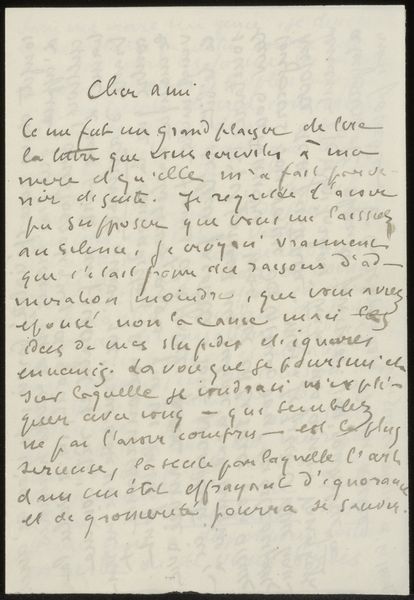 Cher ami
Ce me fut un grand plaisir de lire
la lettre que vous écrivites à ma
mere et qu'elle m'a fait parve-
nir de suite. Je regrette d'avoir
pu supposer que vous me laissiez
au silence, je croyais vraiment
que c'était pour des raisons d'ad-
miration moindre, que vous aviez
epousé non la cause mais les
idees de mes stupides et ignares
ennemis. La voie que je poursuis et
sur laquelle je voudrais m'expli-
quer avec vous — qui semblez
ne pas l'avoir compris — est la plus
serieuse, la seule par laquelle l'art
dans un état effrayant d'ignorance
et de grossiereté pourra se sauver.